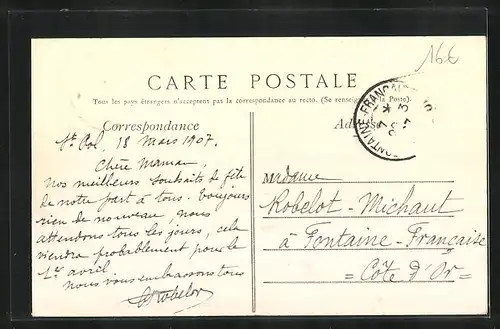 16€
CARTE POSTALE
Tous les pays étrangers n'acceptent pas la correspondance au recto. (Se renseigner à la Poste).
Correspondance
St Pol, 18 Mars 1907.
Chère Maman,
Nos meilleurs souhaits de fête
de notre part à tous. Toujours
rien de nouveau, nous
attendons tous les jours, cela
viendra probablement pour le
1er avril.
nous vous embrassons tous
Robelot
Adresse
FONTAINE-FRANÇAISE
Madame
Robelot-Michaut
à Fontaine-Française
= Côte d'Or =